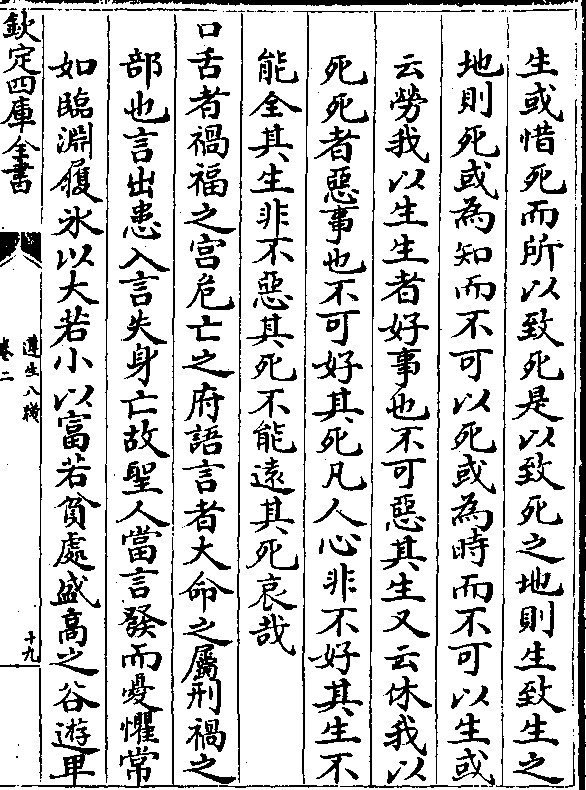 生或惜死而所以致死是以致死之地則生致生之
地則死或為知而不可以死或為時而不可以生或
云勞我以生生者好事也不可惡其生又云休我以
死死者惡事也不可好其死凡人心非不好其生不
能全其生非不惡其死不能遠其死哀哉
口舌者禍福之宫危亡之府語言者大命之屬刑禍之
部也言出患入言失身亡故聖人當言發而憂懼常
如臨淵履氷以大若小以富若貧處盛髙之谷遊卑
欽定四庫全書
遵生八牋
卷二
十九